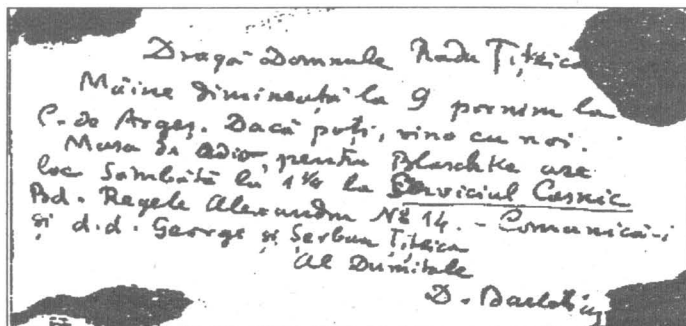 Dragă Domnule Radu Țițeica
Mâine dimineață la 9 pornim la
C. de Argeș. Dacă poți, vino cu noi.
Masa de adio pentru Blaschke are
loc Sâmbătă la 1 1/4 la Serviciul Casnic
Bd. Regele Alexandru № 14. - Comunică-i
și d.d. George și Șerban Țițeica
al Dumitale
D. Barbilian